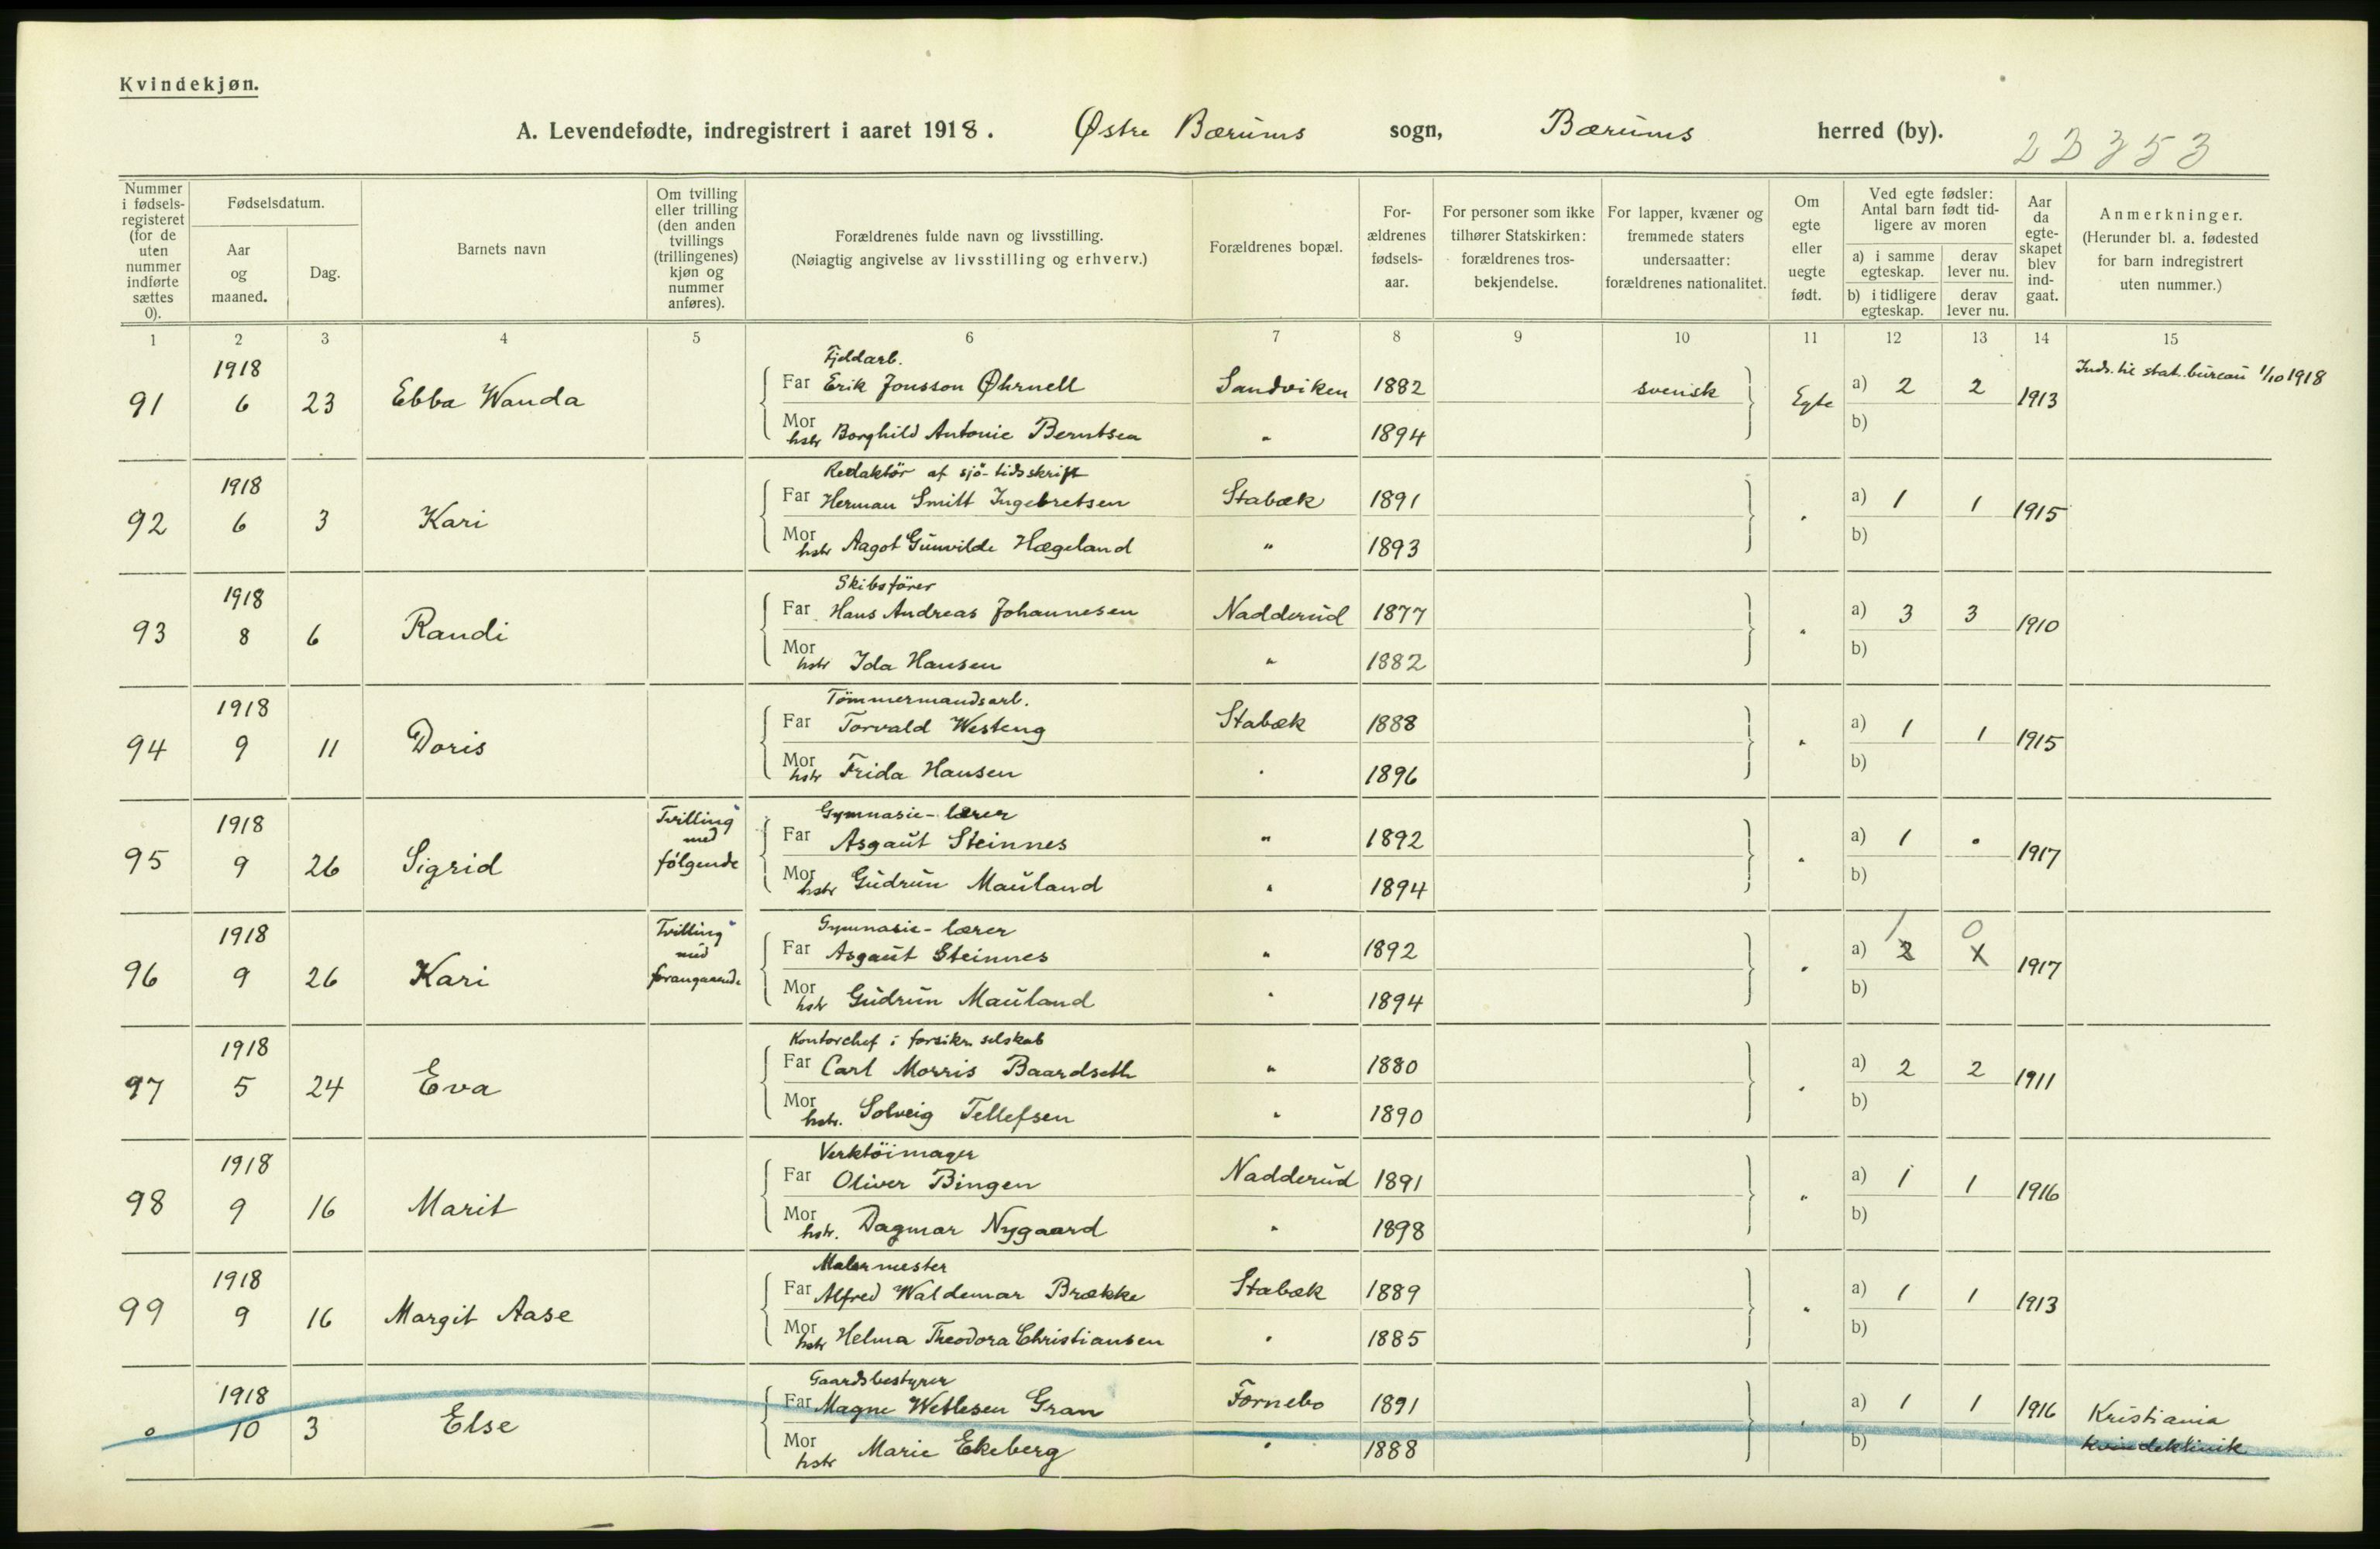 Kvindekjøn.
A. Levendefødte, indregistrert i aaret 1918. Østre Bærums sogn, Bærums herred (by).
22353
Nummer i fødsels-registeret (for de uten nummer indførte sættes 0).
Fødselsdatum.
Aar og maaned.
Dag.
Barnets navn
Om tvilling eller trilling (den anden tvillings (trillingenes) kjøn og nummer anføres).
Forældrenes fulde navn og livsstilling.
(Nøiagtig angivelse av livsstilling og erhverv.)
Forældrenes bopæl.
For-ældrenes fødsels-aar.
For personer som ikke tilhører Statskirken: forældrenes tros-bekjendelse.
For lapper, kvæner og fremmede staters undersaatter: forældrenes nationalitet.
Om egte eller uegte født.
Ved egte fødsler: Antal barn født tid-ligere av moren
a) i samme egteskap. derav lever nu.
b) i tidligere egteskap. derav lever nu.
Aar da egte-skapet blev ind-gaat.
Anmerkninger.
(Herunder bl. a. fødested for barn indregistrert uten nummer.)
1 2 3 4 5 6 7 8 9 10 11 12 13 14 15
1918 Fjeldarb. Inds. til stat. bureau 1/10 1918
91 6 23 Ebba Wanda Far Erik Jonsson Øhrnell Sandviken 1882 svensk Egte a) 2 2 1913
Mor hstr Borghild Antonie Berntsen " 1894 b)
1918 Redaktör af sjö-tidsskrift
92 6 3 Kari Far Herman Smitt Ingebretsen Stabæk 1891 " a) 1 1 1915
Mor hstr Aagot Gunvilde Hægeland " 1893 b)
1918 Skibsförer
93 8 6 Randi Far Hans Andreas Johannesen Nadderud 1877 " a) 3 3 1910
Mor hstr Ida Hansen " 1882 b)
1918 Tömmermandsarb.
94 9 11 Doris Far Torvald Westeng Stabæk 1888 " a) 1 1 1915
Mor hstr Frida Hansen " 1896 b)
1918 Tvilling med følgende Gymnasie-lærer
95 9 26 Sigrid Far Asgaut Steinnes " 1892 " a) 1 0 1917
Mor hstr Gudrun Mauland " 1894 b)
1918 Tvilling med forangaaende Gymnasie-lærer 1 0
96 9 26 Kari Far Asgaut Steinnes " 1892 " a) 2 1 1917
Mor hstr Gudrun Mauland " 1894 b)
1918 Kontorchef i forsikr. selskab
97 5 24 Eva Far Carl Morris Baardseth " 1880 " a) 2 2 1911
Mor hstr. Solveig Tellefsen " 1890 b)
1918 Verktöimager
98 9 16 Marit Far Oliver Bingen Nadderud 1891 " a) 1 1 1916
Mor hstr. Dagmar Nygaard " 1898 b)
1918 Malermester
99 9 16 Margit Aase Far Alfred Waldemar Brække Stabæk 1889 " a) 1 1 1913
Mor hstr Helma Theodora Christiansen " 1885 b)
1918 Gaardsbestyrer
0 10 3 Else Far Magne Wetlesen Gran Fornebo 1891 " a) 1 1 1916 Kristiania
Mor hstr Marie Ekeberg " 1888 b) kvindeklinik